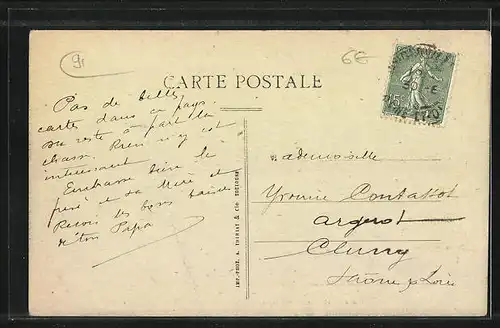 91
6E
CARTE POSTALE
Pas de belles
cartes dans ce pays.
Du reste à part la
chasse. Rien n'y est
intéressant
Embrasse bien le
frère et sa Mère et
Reçois les bons baisers
de ton Papa
IMP.-PHOT. A. THIRIAT & Cie
Mademoiselle
Yvonne Pontabot
Cluny
Saône & Loire